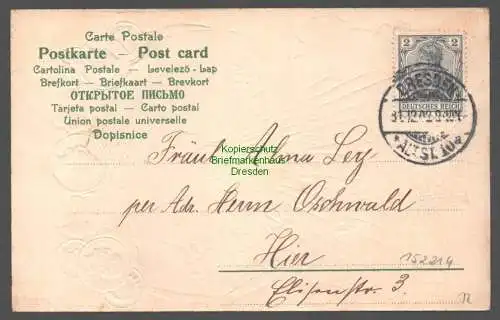 Carte Postale
Postkarte — Post card
Cartolina Postale — Levelező-Lap
Brefkort — Briefkaart — Brevkort
ОТКРЫТОЕ ПИСЬМО
Tarjeta postal — Carto postal
Union postale universelle
Dopisnice
2 2
DEUTSCHES REICH
DRESDEN
*ALTST. 10*
Kopierschutz
Briefmarkenhaus
Dresden
Fräul. Alma Ley
per Adr. Herrn Oschwald
Hier
Elisenstr. 3.
152214